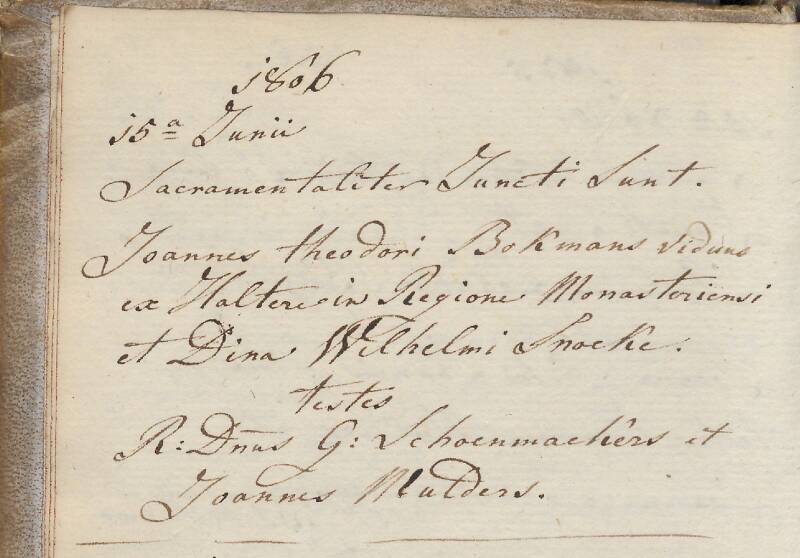 1806
15ª Junii
Sacramentaliter Juncti Sunt.
Joannes theodori Bokmans viduus
ex Haltere in Regione Monasteriensi
et Dina Wilhelmi Snoeke.
testes
R: Dn̄us G: Schoenmackers et
Joannes Mulders.